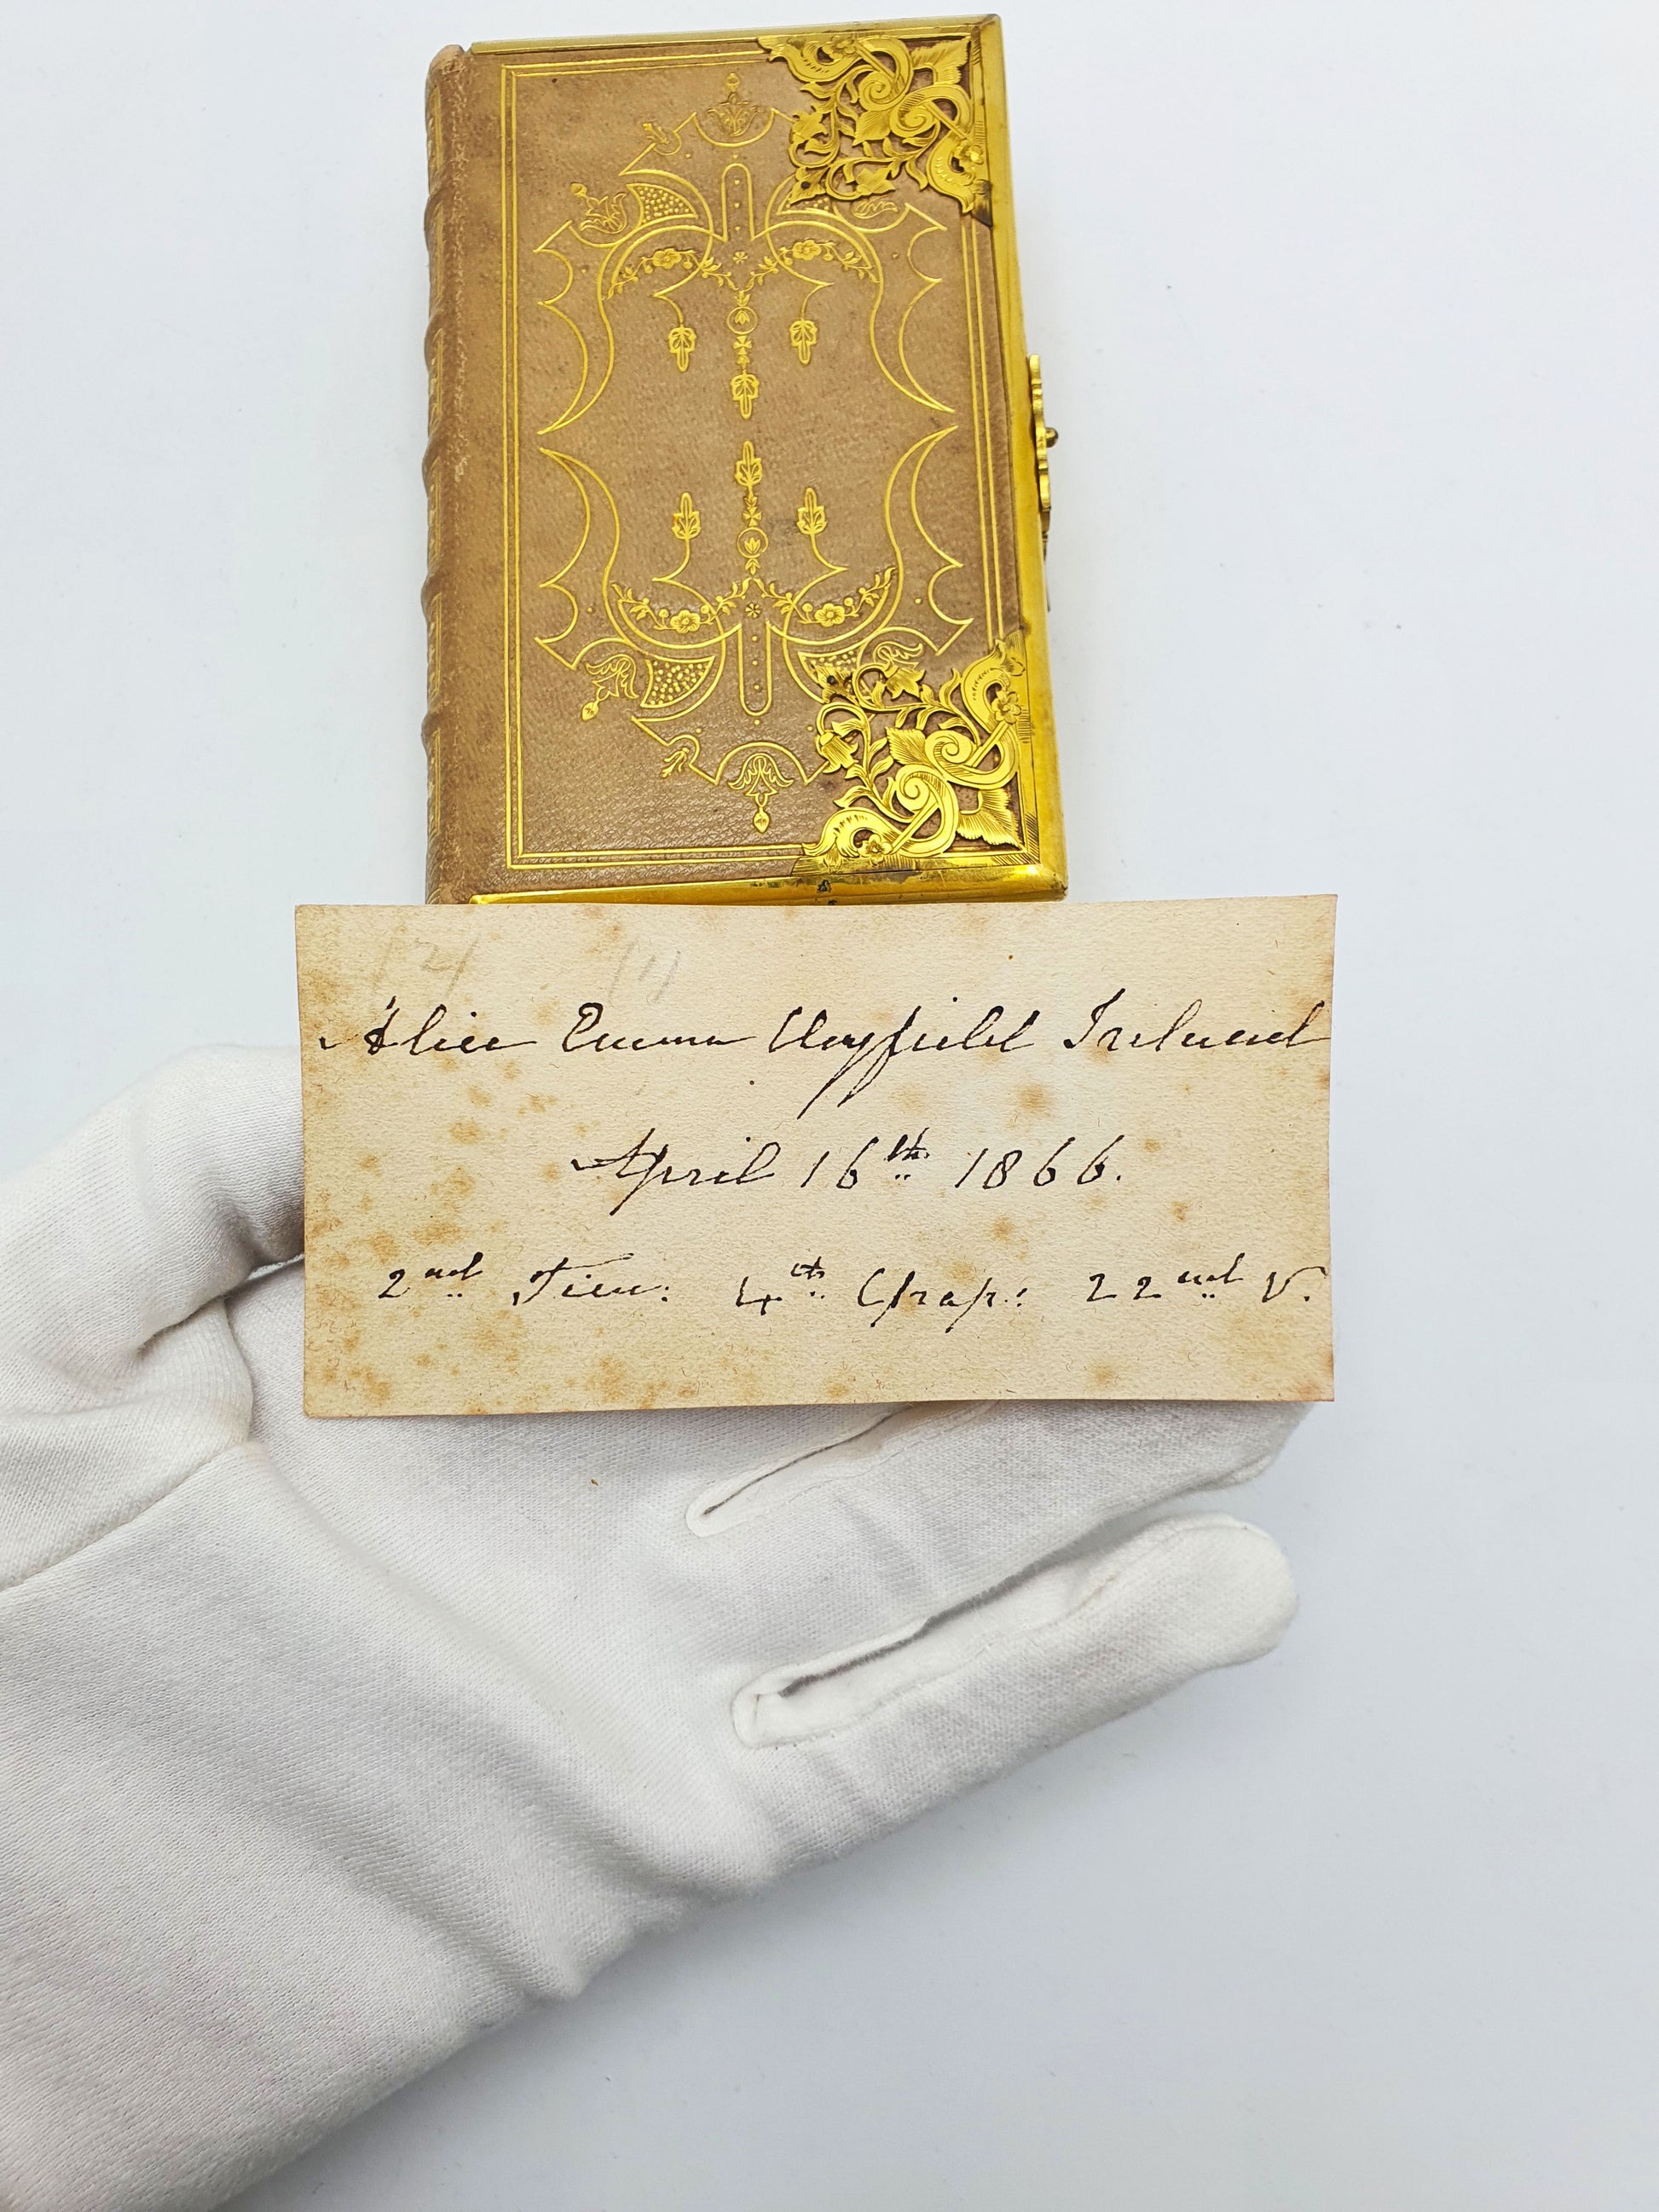 (2) (1)
Alice Emma Clayfield Ireland
April 16th 1866.
2nd Tim: 4th Chap: 22nd V.